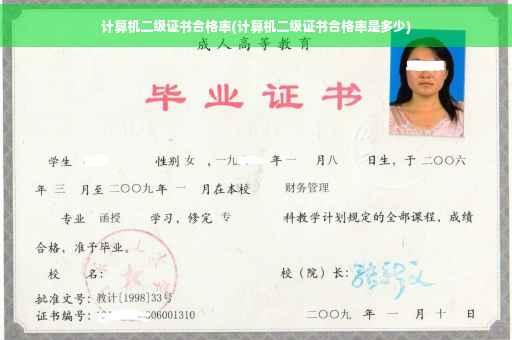 计算机二级证书合格率(计算机二级证书合格率是多少)
成人高等教育
毕业证书
学生 性别 女 ，一九 年一 月八 日生，于二〇〇六
年 三 月至二〇〇九年 一 月在本校 财务管理
专业 函授 学习，修完 专 科教学计划规定的全部课程，成绩
合格，准予毕业。
校 名： 校（院）长：
批准文号：教计[1998]33号
证书编号： 06001310 二〇〇九 年 一 月 十 日